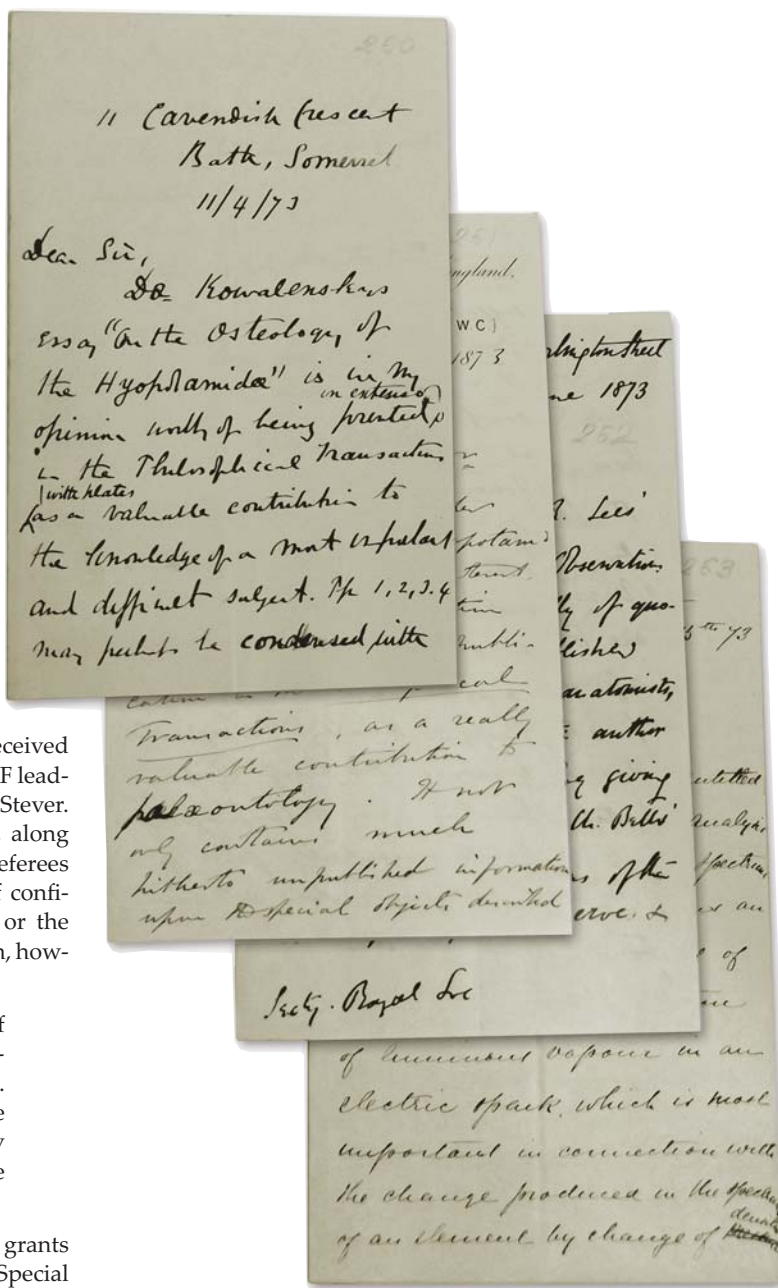 250
11 Cavendish Crescent
Bath, Somerset
11/4/73
Dear Sir,
Dr. Kowalevskys
essay "On the Osteology of
the Hyopotamidæ" is in my
in extenso
opinion worthy of being printed
in the Philosophical Transactions
with plates
as a valuable contribution to
the knowledge of a most important
and difficult subject. Pp 1, 2, 3. 4
may perhaps be condensed with
ngland.
WC)
1873
potami
publi-
Transactions, as a really
valuable contribution to
palæontology. It not
only contains much
hitherto unpublished information
upon the special objects described
lington Street
ne 1873
252
R. Lees'
Observation
ly of quo-
lished
anatomists,
author
giving
Mr. Betts'
of the
erve. &
Secty. Royal Soc
253
5th 73
ntitled
analysis
spectrum
an
of
of luminous vapour in an
electric spark, which is most
important in connection with
the change produced in the spectrum
density
of an element by change of
eceived
F lead-
Stever.
along
eferees
f confi-
or the
n, how-
f
-
.
e
y
e
grants
Special